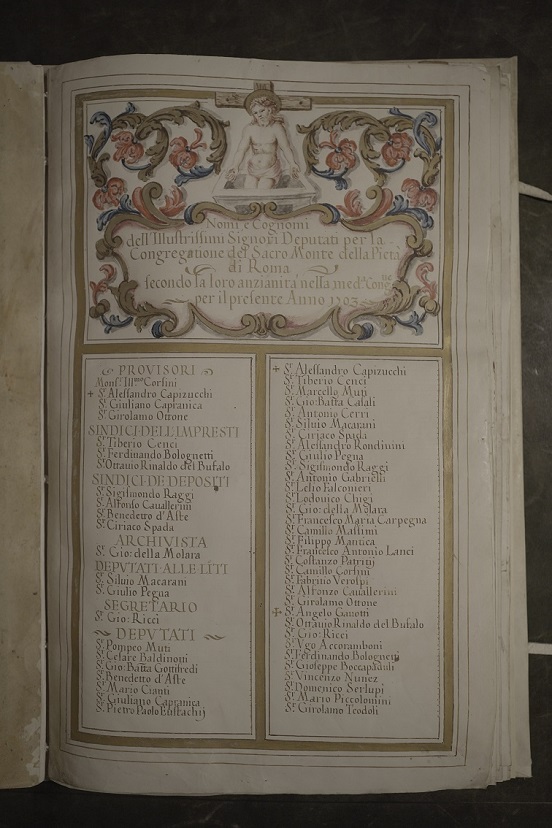 Nomi e Cognomi
dell'Illustrissimi Signori Deputati per la
Congregatione del Sacro Monte della Pietà
di Roma
secondo la loro anzianità nella med.ª Cong.ne
per il presente Anno 1703
PROVISORI
Mons.r Ill.mo Corsini
+ S.r Alessandro Capizucchi
S.r Giuliano Capranica
S.r Girolamo Ottone
SINDICI·DELL'IMPRESTI
S.r Tiberio Cenci
S.r Ferdinando Bolognetti
S.r Ottauio Rinaldo del Bufalo
SINDICI·DE·DEPOSITI
S.r Sigismondo Raggi
S.r Alfonso Cauallerini
S.r Benedetto d'Aste
S.r Ciriaco Spada
ARCHIVISTA
S.r Gio: della Molara
DEPUTATI·ALLE·LITI
S.r Siluio Macarani
S.r Giulio Pegna
SEGRETARIO
S.r Gio: Ricci
DEPVTATI
S.r Pompeo Muti
S.r Cesare Baldinotti
S.r Gio: Batta Gottifredi
S.r Benedetto d'Aste
S.r Mario Cianti
S.r Giuliano Capranica
S.r Pietro Paolo Eustachij
+ S.r Alessandro Capizucchi
S.r Tiberio Cenci
S.r Marcello Muti
S.r Gio: Batta Casali
S.r Antonio Cerri
S.r Siluio Macarani
S.r Ciriaco Spada
S.r Alessandro Rondinini
S.r Giulio Pegna
S.r Sigismondo Raggi
S.r Antonio Gabrielli
S.r Lelio Falconieri
S.r Lodouico Chigi
S.r Gio: della Molara
S.r Francesco Maria Carpegna
S.r Camillo Massimi
S.r Filippo Mantica
S.r Francesco Antonio Lanci
S.r Costanzo Patritij
S.r Camillo Corsini
S.r Fabritio Verospi
S.r Alfonzo Cauallerini
S.r Girolamo Ottone
+ S.r Angelo Gauotti
S.r Ottauio Rinaldo del Bufalo
S.r Gio: Ricci
S.r Vgo Accoramboni
S.r Ferdinando Bolognetti
S.r Gioseppe Boccapaduli
S.r Vincenzo Nunez
S.r Domenico Serlupi
S.r Mario Piccolomini
S.r Girolamo Teodoli